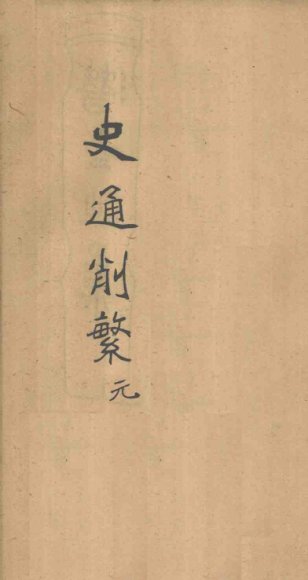 史通削繁元